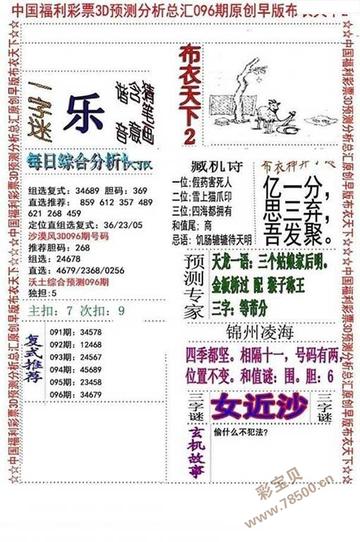 中国福利彩票3D预测分析总汇096期原创早版布衣天下
一字谜
乐
布衣天下2
每日综合分析长报
组选复式：34689 胆码：369
直选推荐： 859 612 357 489
621 268 459
直选复式定位：36/23/05
沙漠风3D096期号码
推荐胆码：268
组选：24678
直选：4679/2368/0256
沃土综合预测096期
独担：5
主扣：7 次扣：9
复式推荐
091期：34578
092期：12468
093期：24567
094期：45689
095期：23458
096期：34679
藏机诗
一位：假药害死人
二位：雪上猫爪印
三位：四海都拥有
和值尾：商
总语：饥肠辘辘待天明
亿一分，
思三弃，
吾发聚。
预测专家
天龙一语：三个姑娘家后明。
金板桥过 配 猴子称王
三字：等蓄分
锦州凌海
四季都坚。相隔十一，号码有两，
位置不变。和值谜：围。胆：6
三字谜
女近沙
三字谜
玄机故事
偷什么不犯法？
彩宝贝
www.78500.cn